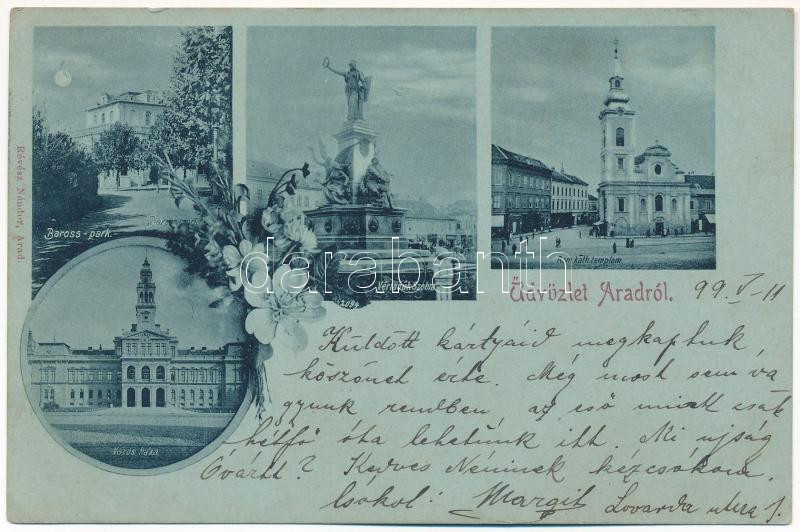 Révész Nándor, Arad.
Baross-park.
Vértanúk szobra
Róm. kath. templom
Város háza.
darabanth
Üdvözlet Aradról.
99 V-11
Küldött kártyáid megkaptuk,
köszönet érte. Még most sem va
gyunk rendben, az eső miatt csak
hétfő óta lehetünk itt. Mi ujság
Óvártt? Kedves Néninek kézcsókom
Csókol: Margit Lovarda utcza